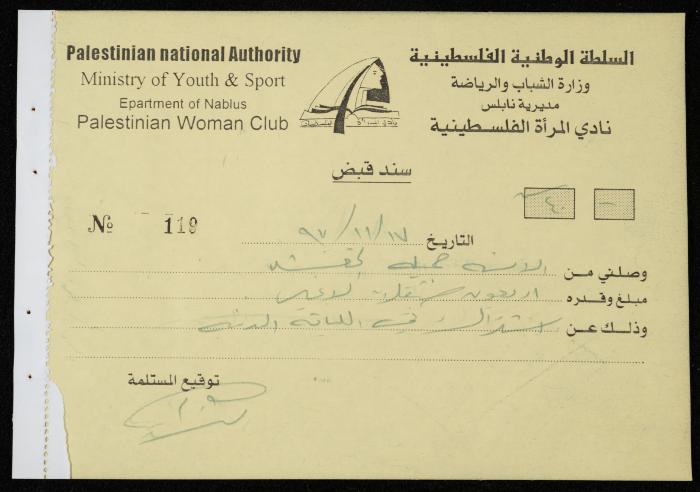 Palestinian national Authority
Ministry of Youth & Sport
Epartment of Nablus
Palestinian Woman Club
السلطة الوطنية الفلسطينية
وزارة الشباب والرياضة
مديرية نابلس
نادي المرأة الفلسطينية
سند قبض
٤٠
№ 119
التاريخ ٩٧/١١/١٧
وصلني من الانسة جميله
مبلغ وقدره اربعون شيقلا لا غير
وذلك عن اشتراك في اللياقة البدنية
توقيع المستلمة